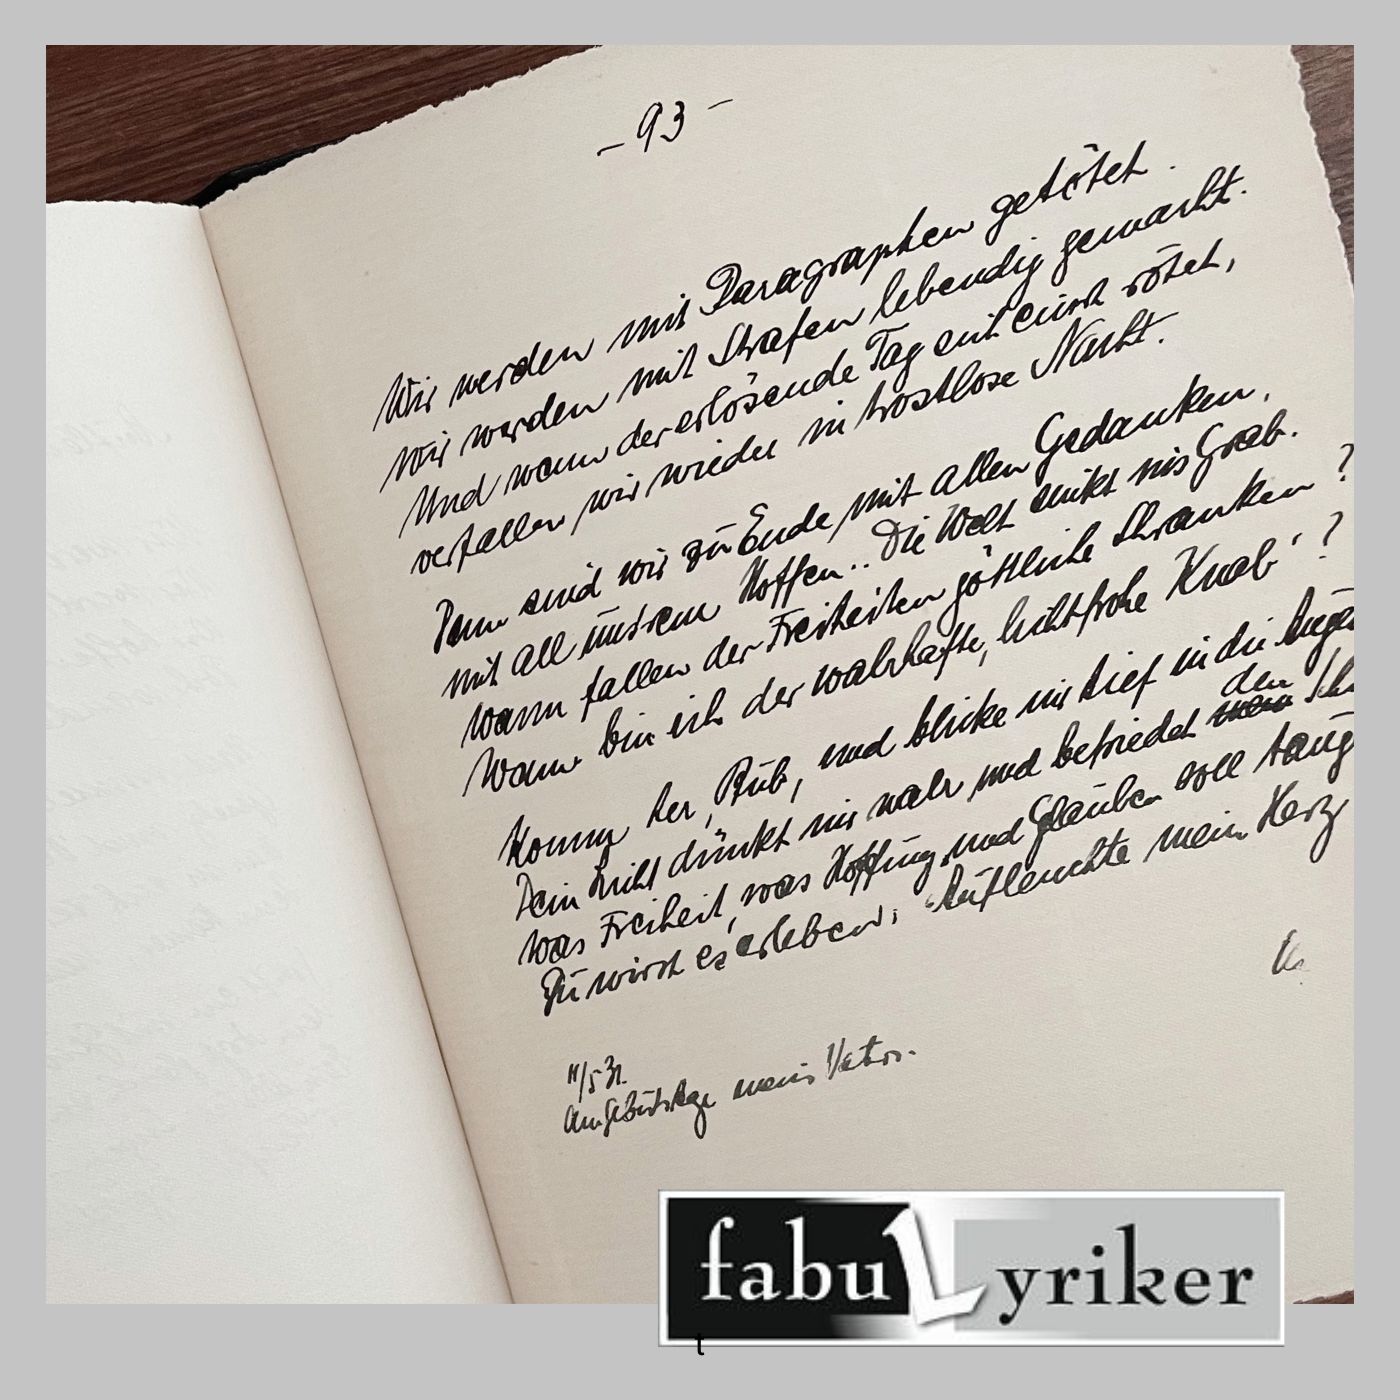 – 93 –
Wir werden mit Paragraphen getötet.
Wir werden mit Strafen lebendig gemacht.
Und wann der erlösende Tag sich rötet,
verfallen wir wieder in trostlose Nacht.
Dann sind wir zu Ende mit allen Gedanken,
mit all unsrem Hoffen.. Die Welt sinkt ins Grab.
Wann fallen der Freiheiten göttliche Schranken?
Wann bin ich der wahrhafte, lichtfrohe Knab'?
Komm her, Bub, und blicke mir tief in die
Dein Licht dünkt mir wahr und befriedet den
was Freiheit, was Hoffnung und Glauben soll
Du wirst es erleben. Aufleuchte mein Herz
11/5 31.
Am Geburtstage meines Vaters.
fabuLyriker
t